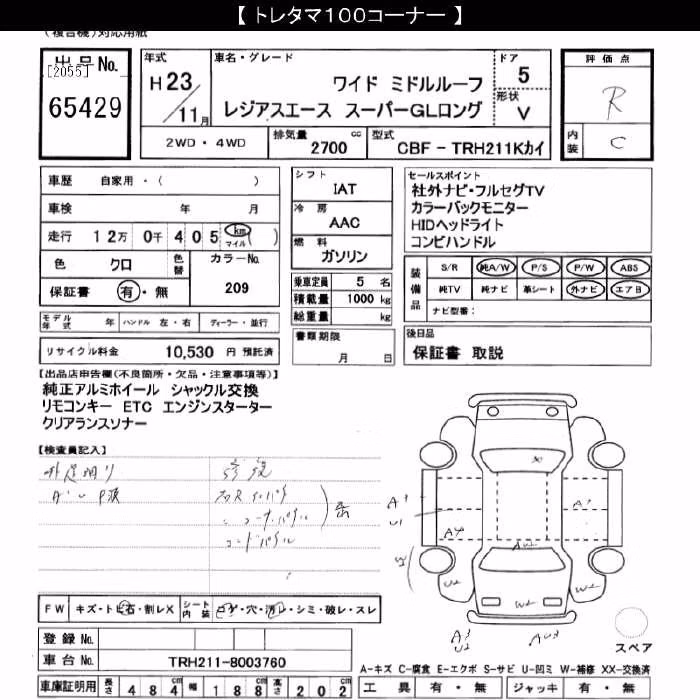 【 トレタマ100コーナー 】
(複合機)対応用紙
出品No.
[2055]
65429
年式
H 23
11月
車名・グレード
ワイド ミドルルーフ
レジアスエース スーパーGLロング
ドア
5
形状
V
評価点
R
内装
C
2WD・4WD
排気量
2700 cc
型式
CBF - TRH211Kカイ
車歴 自家用・( )
車検 年 月
走行 12万 0千 405 km マイル ( )
色 クロ
色替
カラーNo.
209
保証書 有・無
モデル年式 年 ハンドル 左・右 ディーラー・並行
リサイクル料金 10,530 円 預託済
シフト
IAT
冷房
AAC
燃料
ガソリン
乗車定員 5 名
積載量 1000 kg
総重量 kg
書類期限
月 日
セールスポイント
社外ナビ・フルセグTV
カラーバックモニター
HIDヘッドライト
コンビハンドル
装備品
S/R 純A/W P/S P/W ABS
純TV 純ナビ 革シート 外ナビ エアB
ナビ型番:
後日品
保証書 取説
【出品店申告欄(不良箇所・欠品・注意事項等)】
純正アルミホイール シャックル交換
リモコンキー ETC エンジンスターター
クリアランスソナー
【検査員記入】
W2
W2
W2
A3
U2
AU3
FW キズ・トビ石・割レX
シート内装 コゲ・穴・汚レ・シミ・破レ・スレ
登録No.
車台No. TRH211-8003760
スペア
A-キズ C-腐食 E-エクボ S-サビ U-凹ミ W-補修 XX-交換済
車庫証明用 長さ 484 cm 幅 188 cm 高さ 202 cm
工具 有・無 ジャッキ 有・無